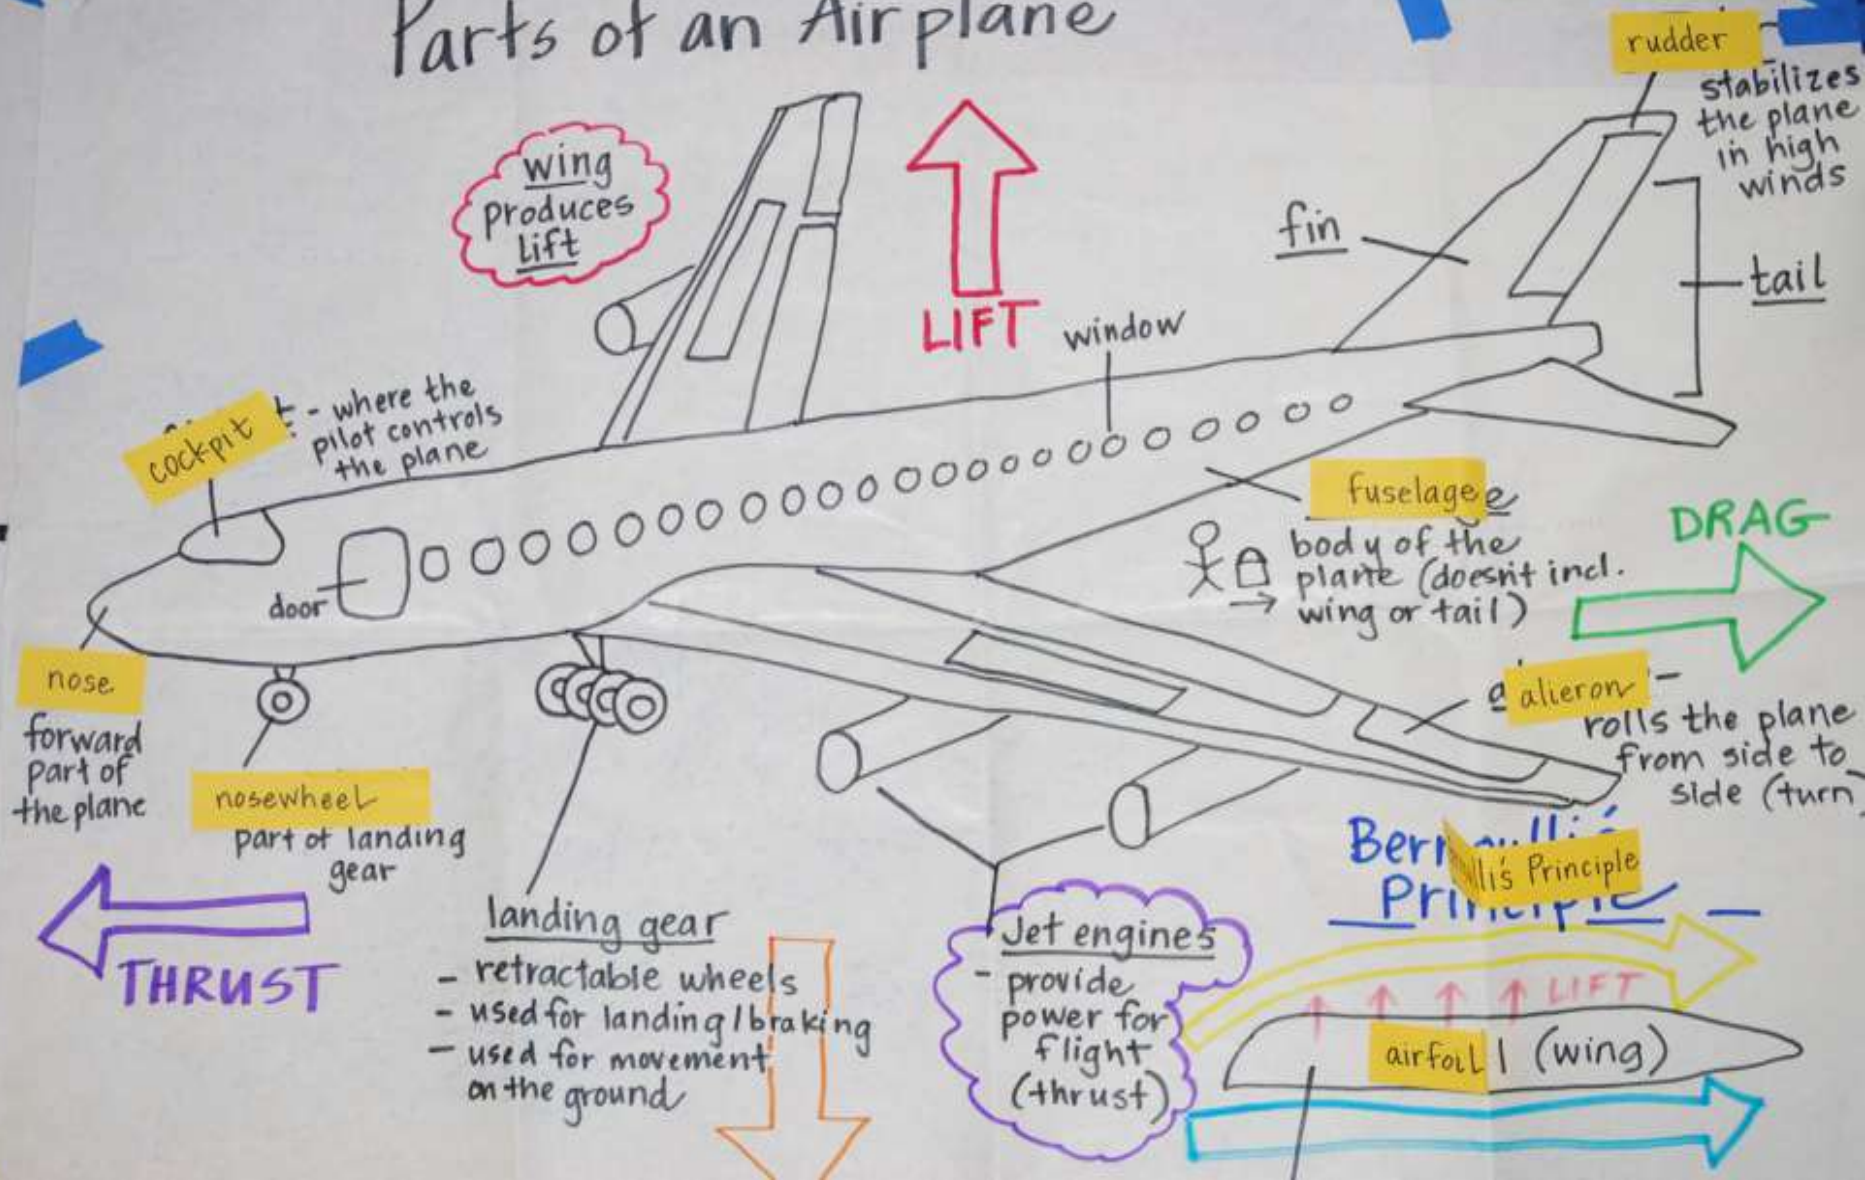 Parts of an Airplane
rudder
stabilizes
the plane
in high
winds
wing
produces
lift
LIFT
fin
tail
window
cockpit
- where the
pilot controls
the plane
fuselage
body of the
plane (doesn't incl.
wing or tail)
DRAG
door
nose
forward
part of
the plane
nosewheel
part of landing
gear
alieron -
rolls the plane
from side to
side (turn
THRUST
landing gear
- retractable wheels
- used for landing/braking
- used for movement
on the ground
Jet engines
- provide
power for
flight
(thrust)
Bernoulli's
Principle
lli's Principle
LIFT
airfoil (wing)